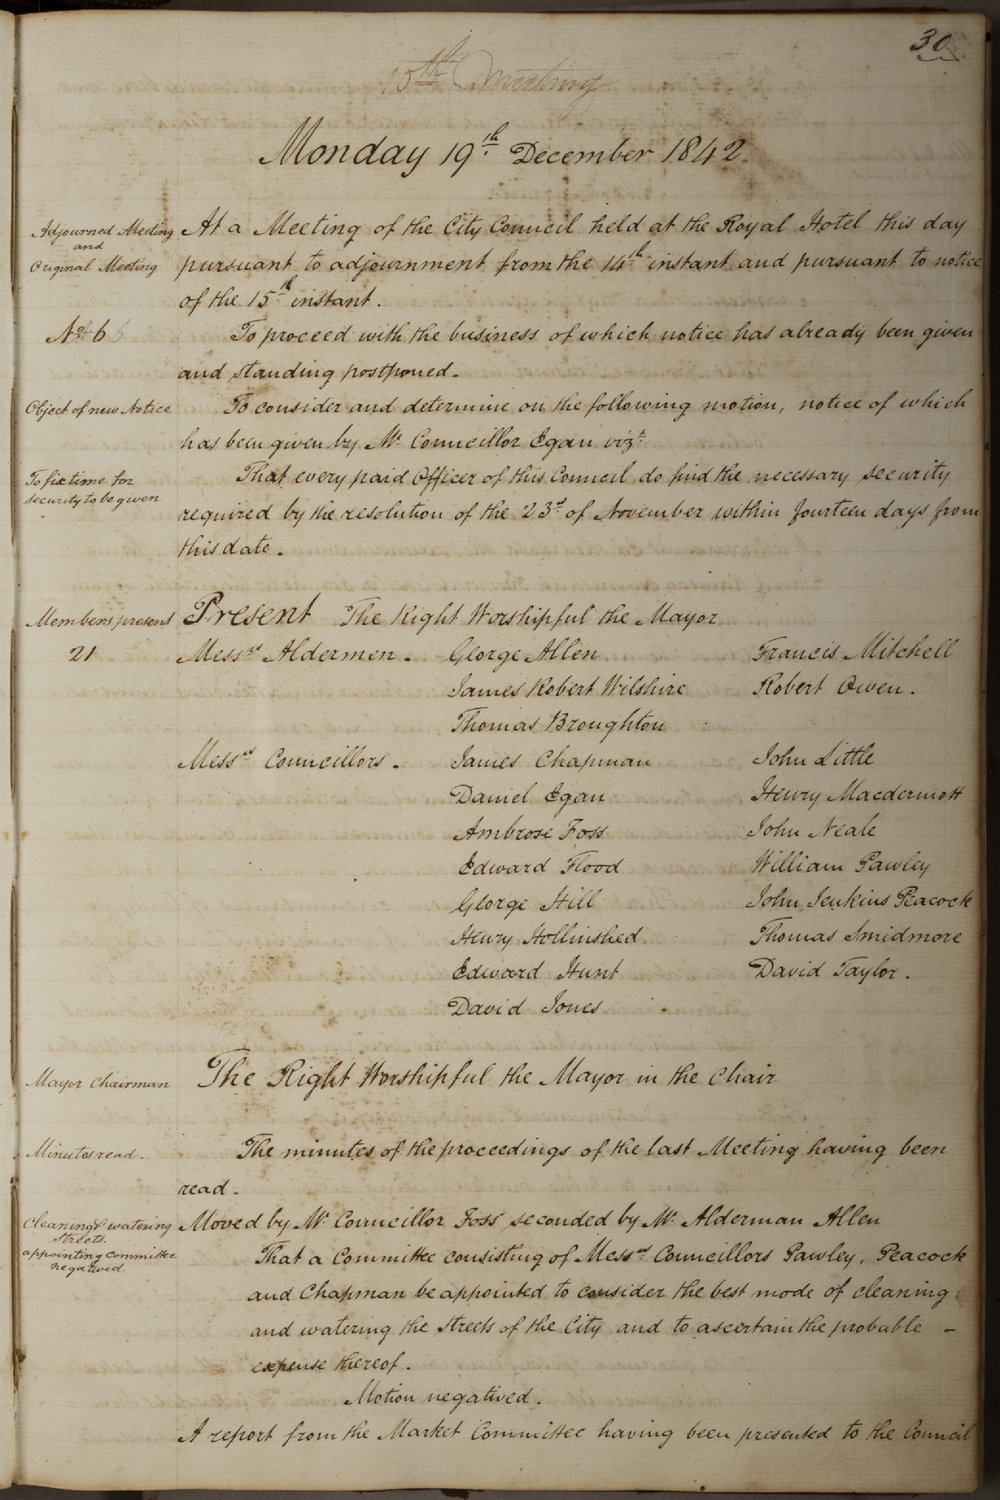 30
10th Meeting
Monday 19th December 1842.
Adjourned Meeting
and
Original Meeting
At a Meeting of the City Council held at the Royal Hotel this day
pursuant to adjournment from the 14th instant and pursuant to notice
of the 15th instant.
No. 6
To proceed with the business of which notice has already been given
and standing postponed.
Object of new Notice
To consider and determine on the following motion, notice of which
has been given by Mr. Councillor Egan vizt.
To fix time for
security to be given
That every paid Officer of this Council do find the necessary security
required by the resolution of the 23d of November within fourteen days from
this date.
Members present
21
Present The Right Worshipful the Mayor
Messrs Aldermen. George Allen Francis Mitchell
James Robert Wilshire Robert Owen.
Thomas Broughton
Messrs Councillors. James Chapman John Little
Daniel Egan Henry Macdermott
Ambrose Foss John Neale
Edward Flood William Pawley
George Hill John Jenkins Peacock
Henry Hollinshed Thomas Smidmore
Edward Hunt David Taylor.
David Jones
Mayor Chairman
The Right Worshipful the Mayor in the Chair
Minutes read.
The minutes of the proceedings of the last Meeting having been
read.
Cleaning & watering
Streets.
appointing committee
negatived
Moved by Mr. Councillor Foss seconded by Mr. Alderman Allen
That a Committee consisting of Messrs Councillors Pawley, Peacock
and Chapman be appointed to consider the best mode of cleaning
and watering the Streets of the City and to ascertain the probable –
expense thereof.
Motion negatived.
A report from the Market Committee having been presented to the Council